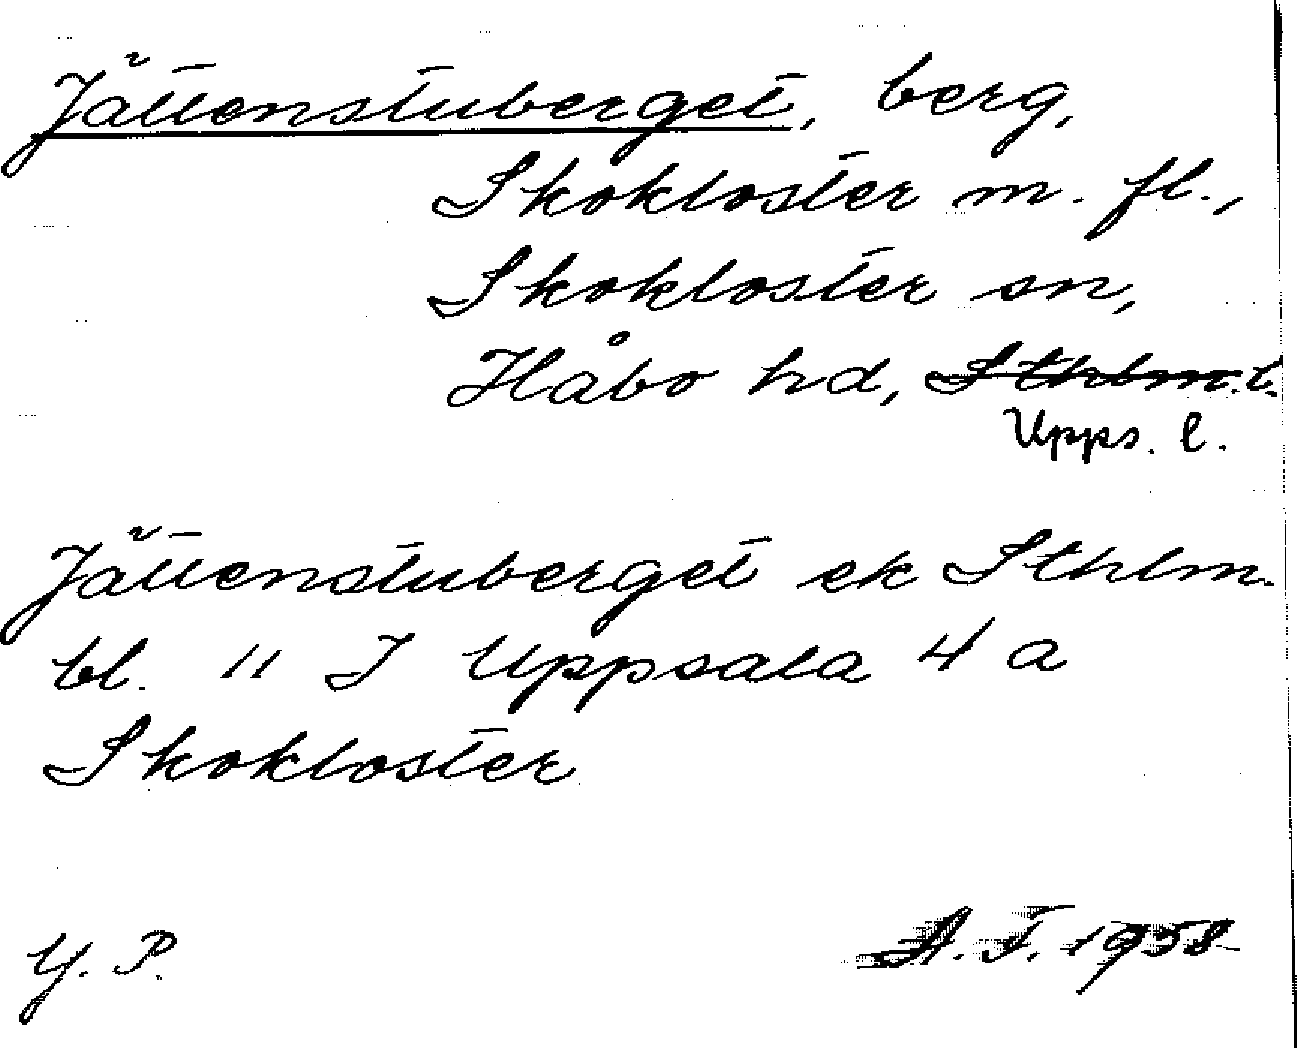 Jättenstuberget, berg,
Skokloster m. fl.,
Skokloster sn,
Håbo hd, Sthlm. l.
Upps. l.
Jättenstuberget ek Sthlm.
bl. 11 I Uppsala 4 a
Skokloster
Y. P.
A. F. 1958